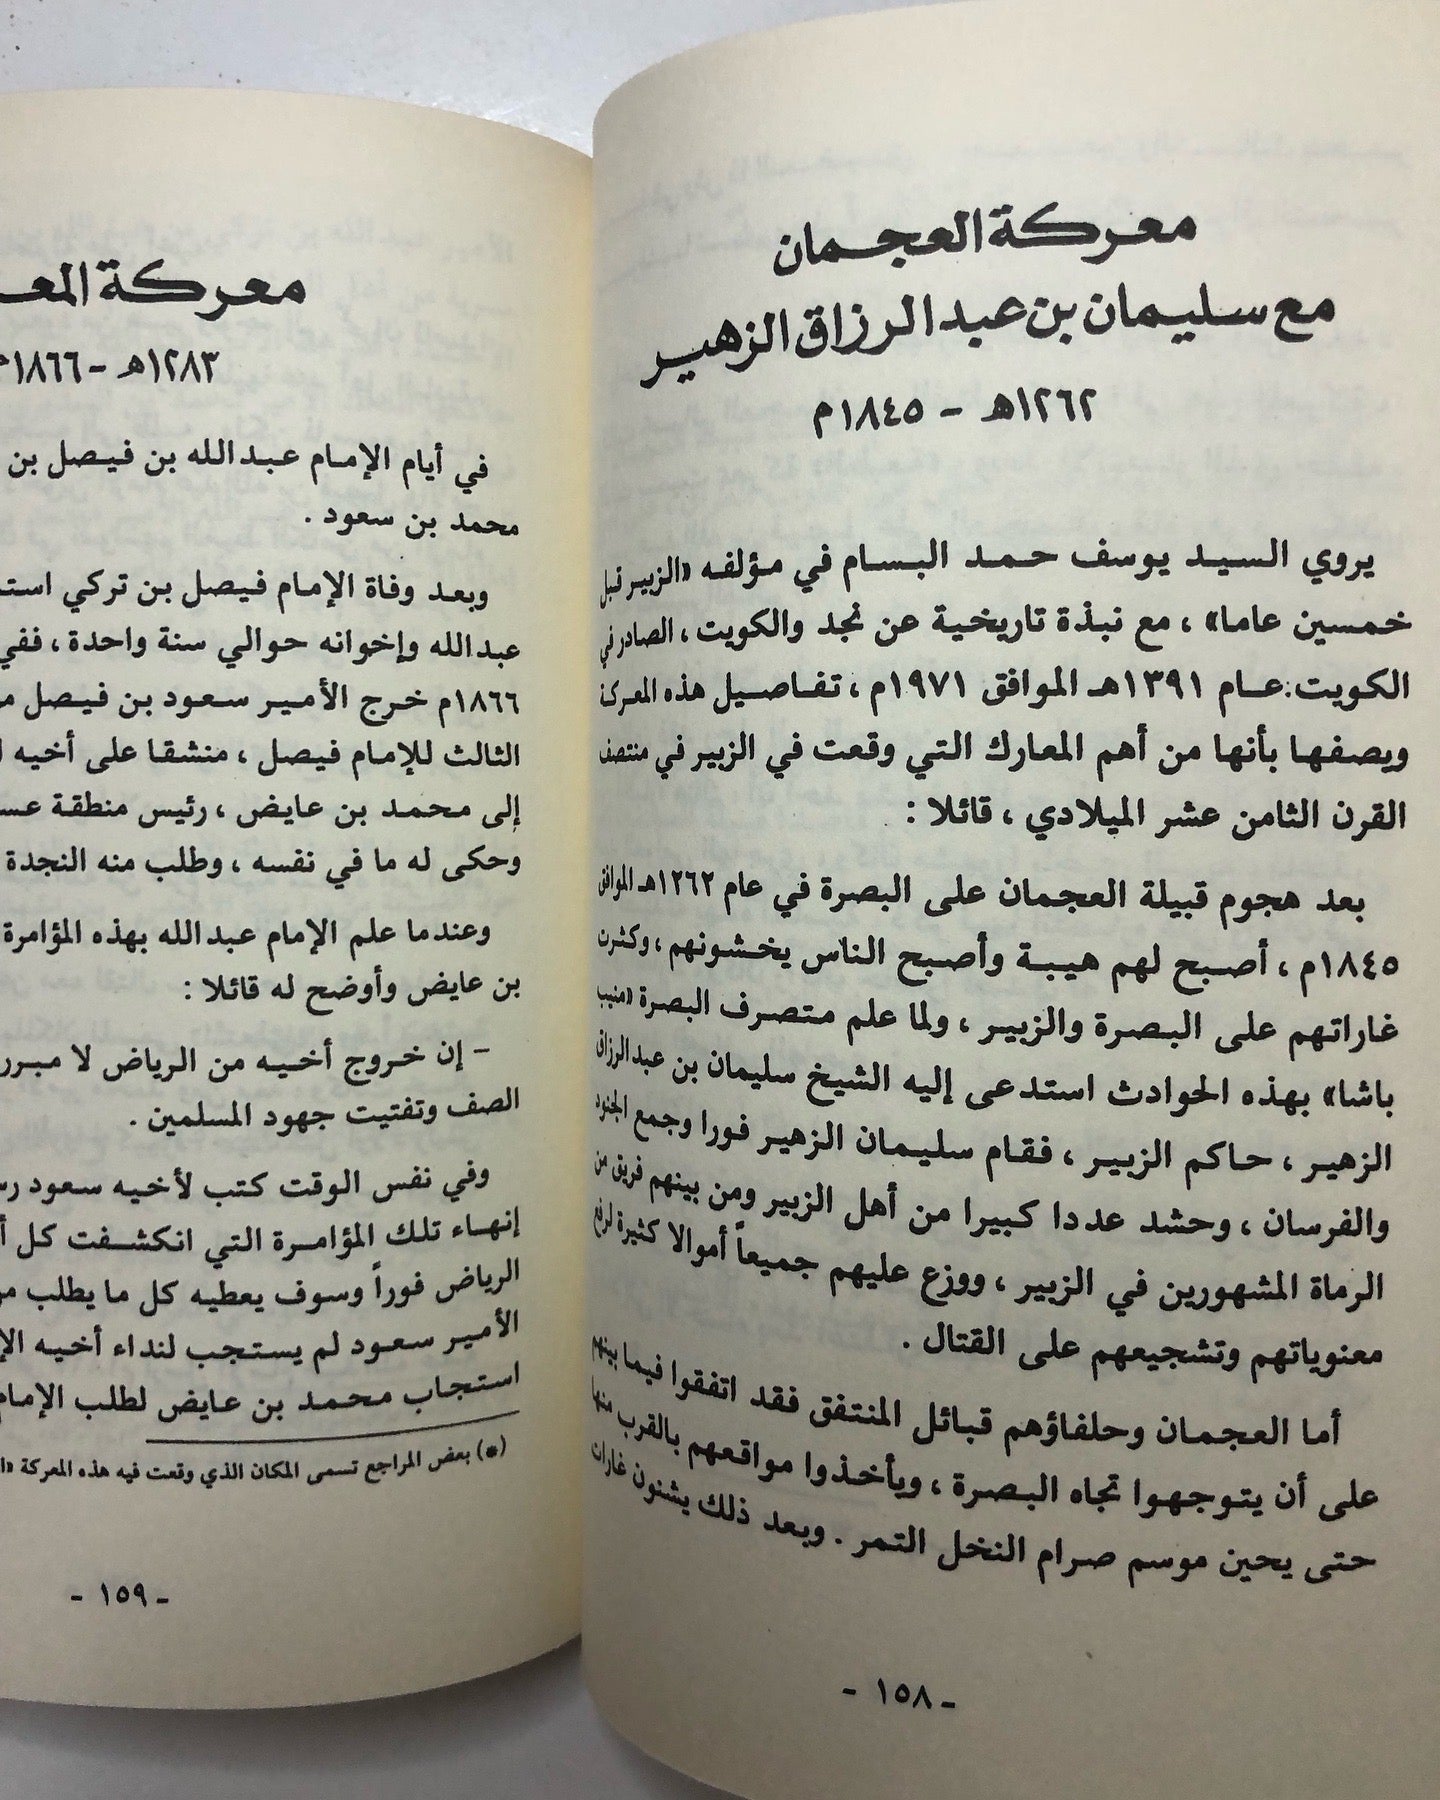 معركة العجمان
مع سليمان بن عبد الرزاق الزهير
١٢٦٢هـ - ١٨٤٥م
يروي السيد يوسف حمد البسام في مؤلفه «الزبير قبل
خمسين عاما» ، مع نبذة تاريخية عن نجد والكويت ، الصادر في
الكويت: عام ١٣٩١هـ الموافق ١٩٧١م ، تفاصيل هذه المعركة
ويصفها بأنها من أهم المعارك التي وقعت في الزبير في منتصف
القرن الثامن عشر الميلادي ، قائلا :
بعد هجوم قبيلة العجمان على البصرة في عام ١٢٦٢هـ الموافق
١٨٤٥م ، أصبح لهم هيبة وأصبح الناس يخشونهم ، وكثرت
غاراتهم على البصرة والزبير ، ولما علم متصرف البصرة «منيب
باشا» بهذه الحوادث استدعى إليه الشيخ سليمان بن عبد الرزاق
الزهير ، حاكم الزبير ، فقام سليمان الزهير فورا وجمع الجنود
والفرسان ، وحشد عددا كبيرا من أهل الزبير ومن بينهم فريق من
الرماة المشهورين في الزبير ، ووزع عليهم جميعاً أموالا كثيرة لرفع
معنوياتهم وتشجيعهم على القتال .
أما العجمان وحلفاؤهم قبائل المنتفق فقد اتفقوا فيما بينهم
على أن يتوجهوا تجاه البصرة ، ويأخذوا مواقعهم بالقرب منها
حتى يحين موسم صرام النخل التمر . وبعد ذلك يشنون غارات
- ١٥٨ -
معركة
١٢٨٣هـ - ١٨٦٦م
في أيام الإمام عبدالله بن فيصل بن
محمد بن سعود .
وبعد وفاة الإمام فيصل بن تركي
عبدالله وإخوانه حوالي سنة واحدة ، ففي
١٨٦٦م خرج الأمير سعود بن فيصل
الثالث للإمام فيصل ، منشقا على أخيه
إلى محمد بن عايض ، رئيس منطقة
وحكى له ما في نفسه ، وطلب منه النجدة
وعندما علم الإمام عبدالله بهذه المؤامرة
بن عايض وأوضح له قائلا :
- إن خروج أخيه من الرياض لا مبرر
الصف وتفتيت جهود المسلمين .
وفي نفس الوقت كتب لأخيه سعود
إنهاء تلك المؤامرة التي انكشفت كل
الرياض فوراً وسوف يعطيه كل ما يطلب
الأمير سعود لم يستجب لنداء أخيه
استجاب محمد بن عايض لطلب الإمام
(*) بعض المراجع تسمى المكان الذي وقعت فيه هذه المعركة
- ١٥٩ -